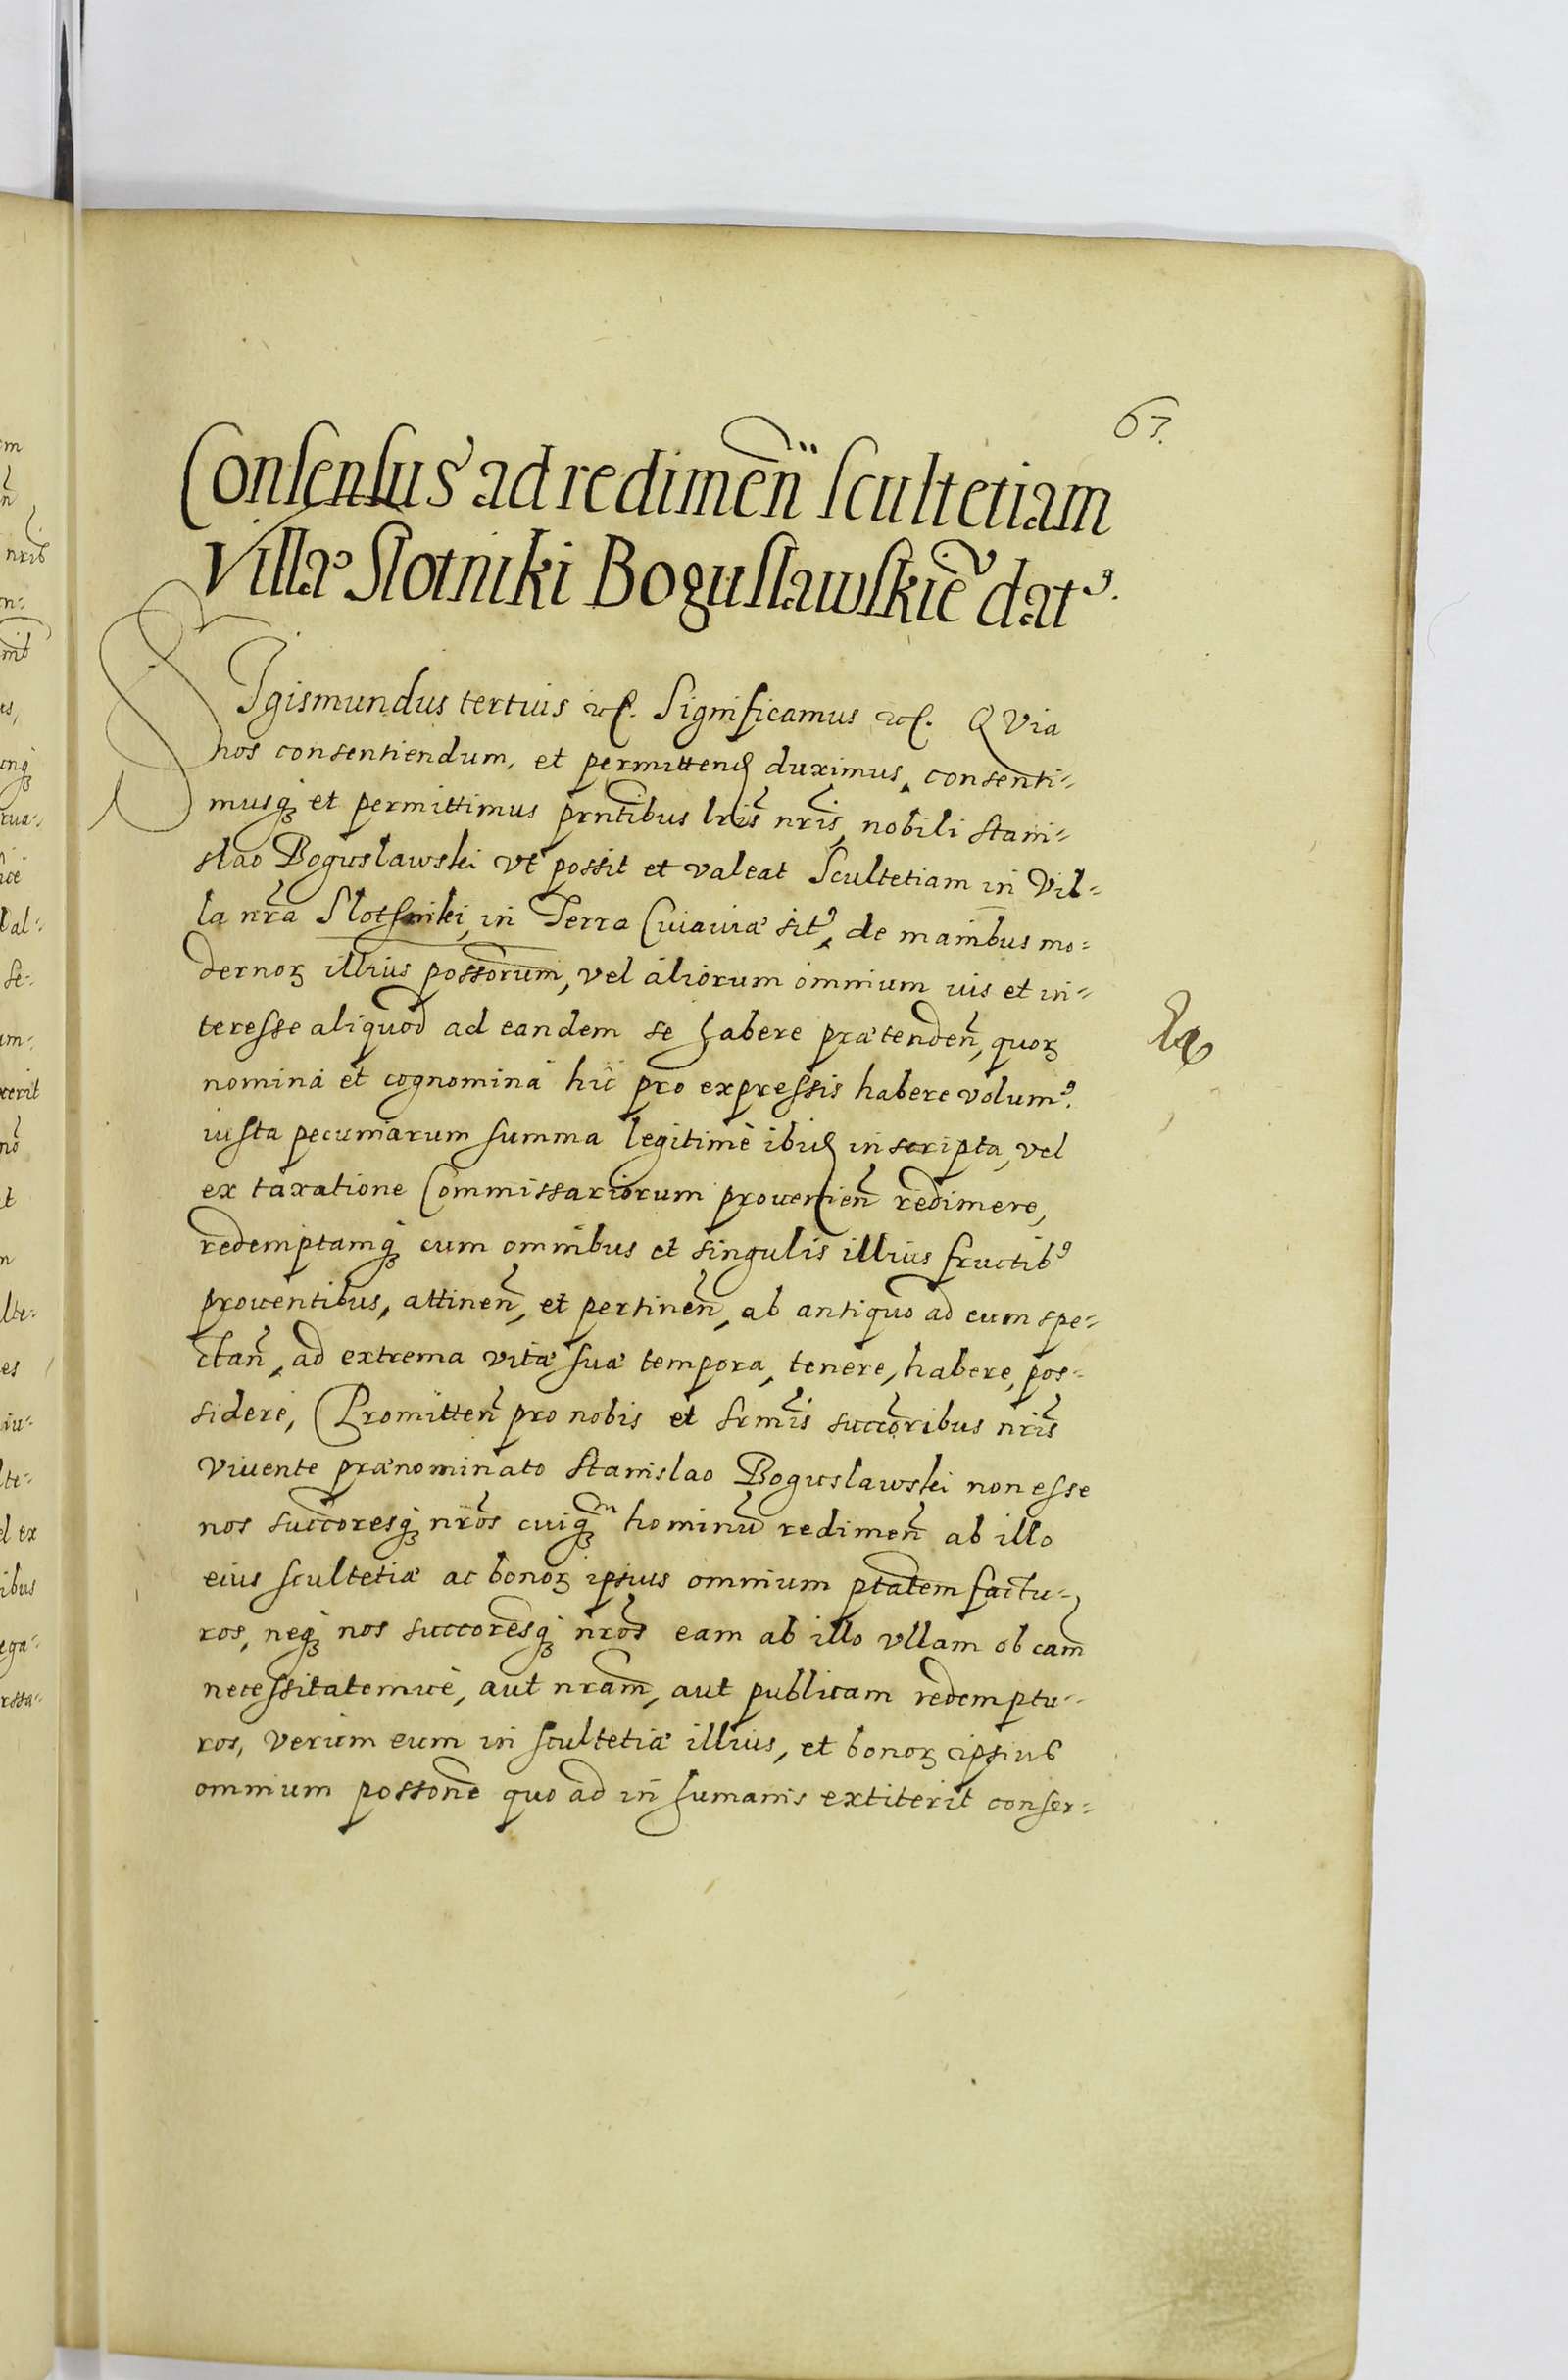 63.
Consensus ad redimen̄ scultetiam
Villæ Slotniki Boguslawskiē datꝰ.
SIgismundus tertius etc. Significamus etc. QVia
nos consentiendum, et permittend duximus, consenti-
musq₃ et permittimus prn̄tibus lris̄ nris̄, nobili Stani-
slao Boguslawski vt possit et valeat Scultetiam in Vil-
la nrā Slotsniki, in Terra Cuiauiæ sitꝰ, de manibus mo-
dernoꝝ illius possorum̄, vel aliorum omnium ius et in-
teresse aliquod ad eandem se habere prætenden̄, quoꝝ
nomina et cognomina hic pro expressis habere volumꝰ.
iusta pecuniarum summa legitimè ibid inscripta, vel
ex taxatione Commissariorum prouenien̄ redimere,
redemptamq₃ cum omnibus et singulis illius fructibꝰ
prouentibus, attinen̄, et pertinen̄, ab antiquo ad eum spe-
ctan̄, ad extrema vitæ suæ tempora, tenere, habere, pos-
sidere, Promitten̄ pro nobis et srmis̄ succoribus̄ nris̄
viuente prænominato Stanislao Boguslawski non esse
nos succoresq₃̄ nros̄ cuiq₃ᵐ hominū redimen̄ ab illo
eius scultetiæ ac bonoꝝ ipsius omnium ptatem̄ factu-
ros, neq₃ nos succoresq₃̄ nros̄ eam ab illo vllam ob cam̄
necessitatemue, aut nram̄, aut publicam redemptu-
ros, verum eum in scultetiæ illius, et bonoꝝ ipsius
omnium possonē quo ad in humanis extiterit conser-